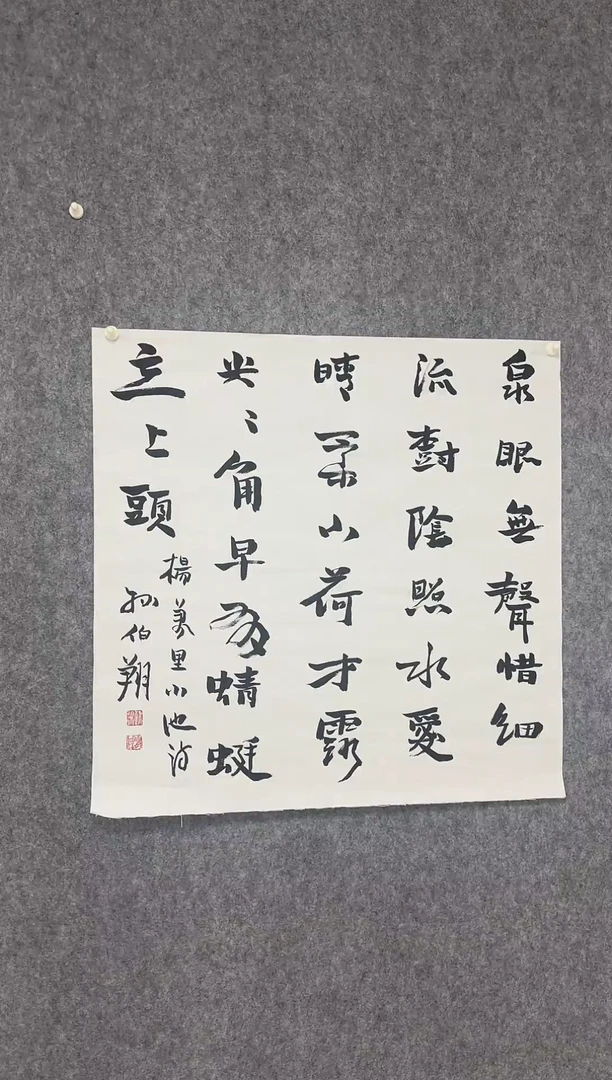 泉眼無聲惜細
流樹陰照水愛
晴柔小荷才露
尖〻角早有蜻蜓
立上頭
楊萬里小池詩
孫伯翔